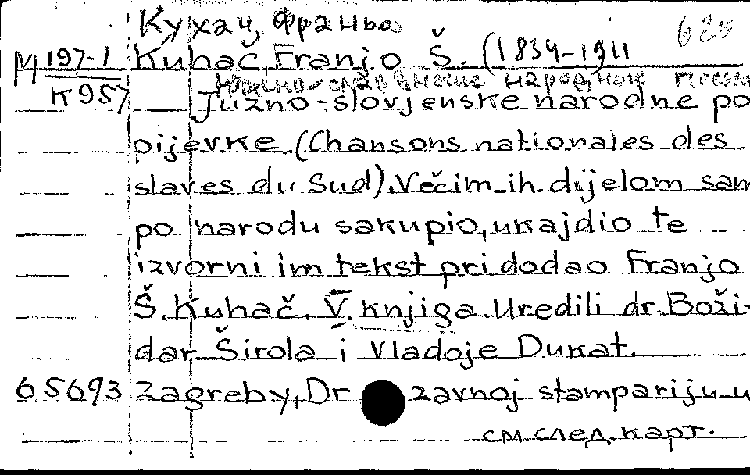 Кухач, Франьо
620
М 197-1 Kuhač Franjo Š. (1834-1911
К 957
Južno-slovjenske narodne po
pijevke (Chansons nationales des
slaves du Sud). Većim ih dijelom sam
po narodu sakupio, ukajdio te
izvorni im tekst pridodao Franjo
Š. Kuhač. V. knjiga. Uredili dr. Boži-
dar Širola i Vladoje Dukat.
65693 Zagreby, Dr zavnoj stampariju u
см. след. карт.